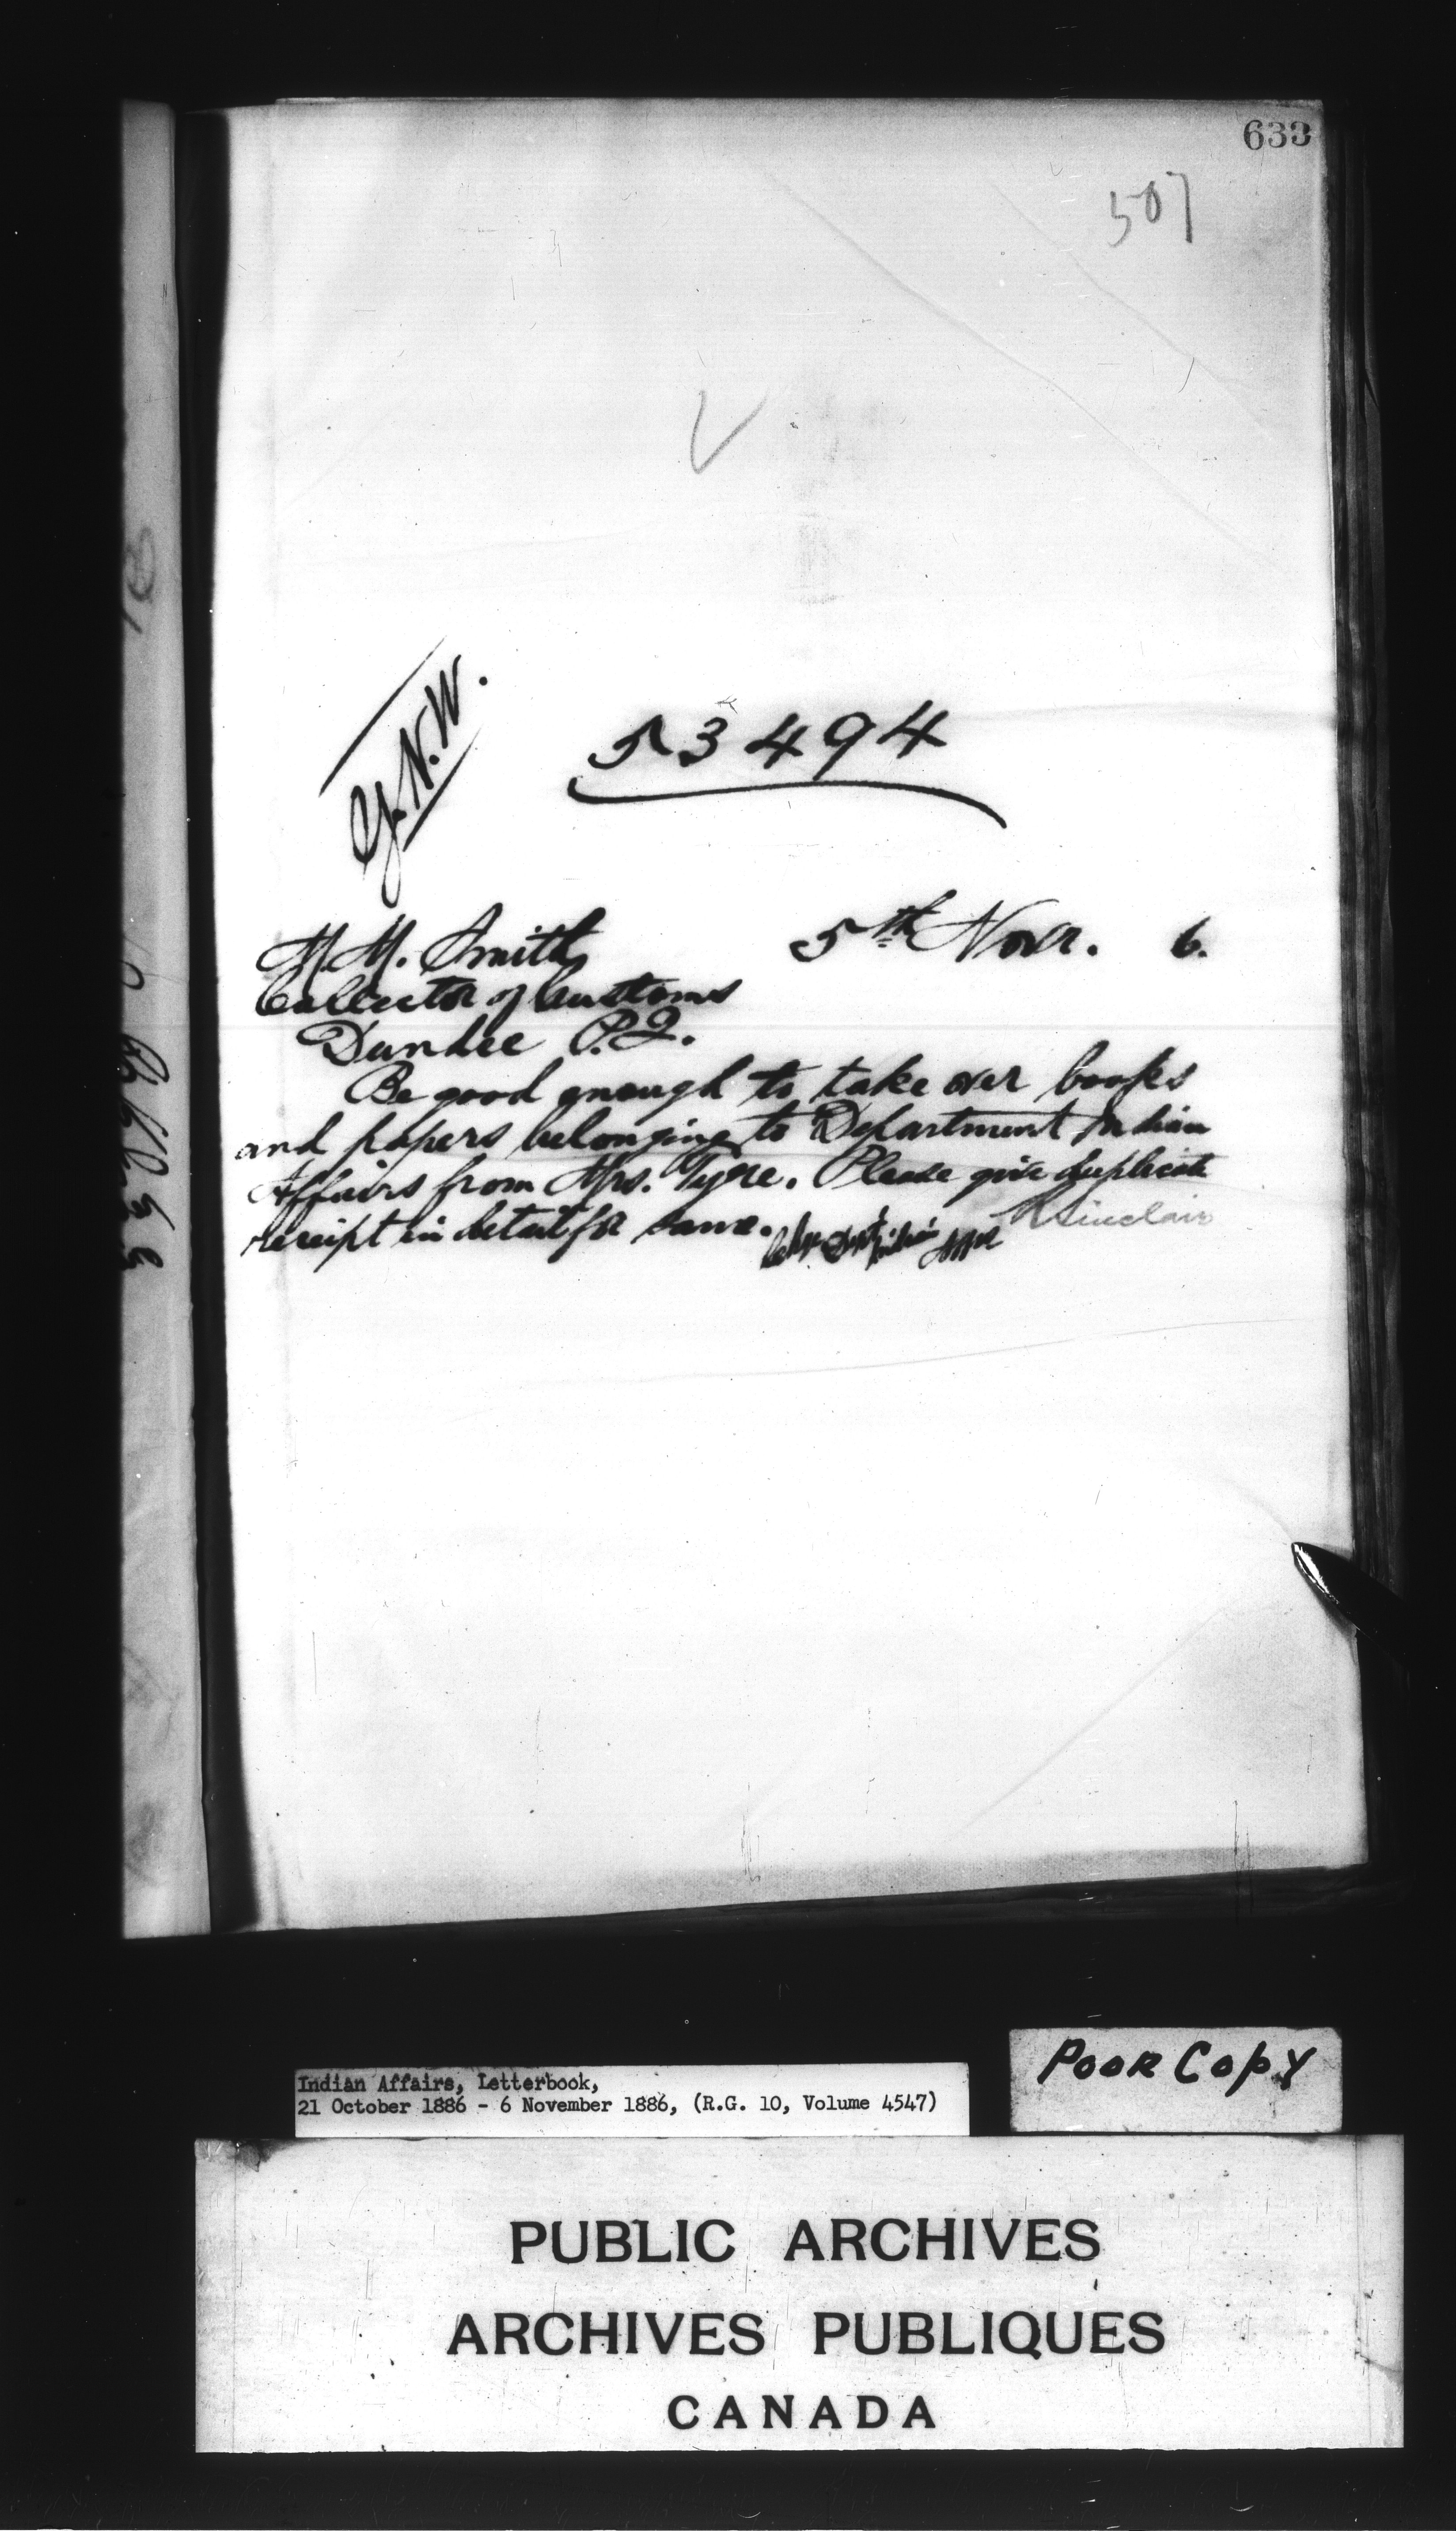 633
507
G.N.W.
53494
M. M. Smith 5th Novr. 6.
Collector of Customs
Dundee P.Q.
Be good enough to take over books
and papers belonging to Department Indian
Affairs from Mrs. Tyre. Please give duplicate
receipt in detail for same. R Sinclair
Dept Indian
Poor Copy
Indian Affairs, Letterbook,
21 October 1886 - 6 November 1886, (R.G. 10, Volume 4547)
PUBLIC ARCHIVES
ARCHIVES PUBLIQUES
CANADA